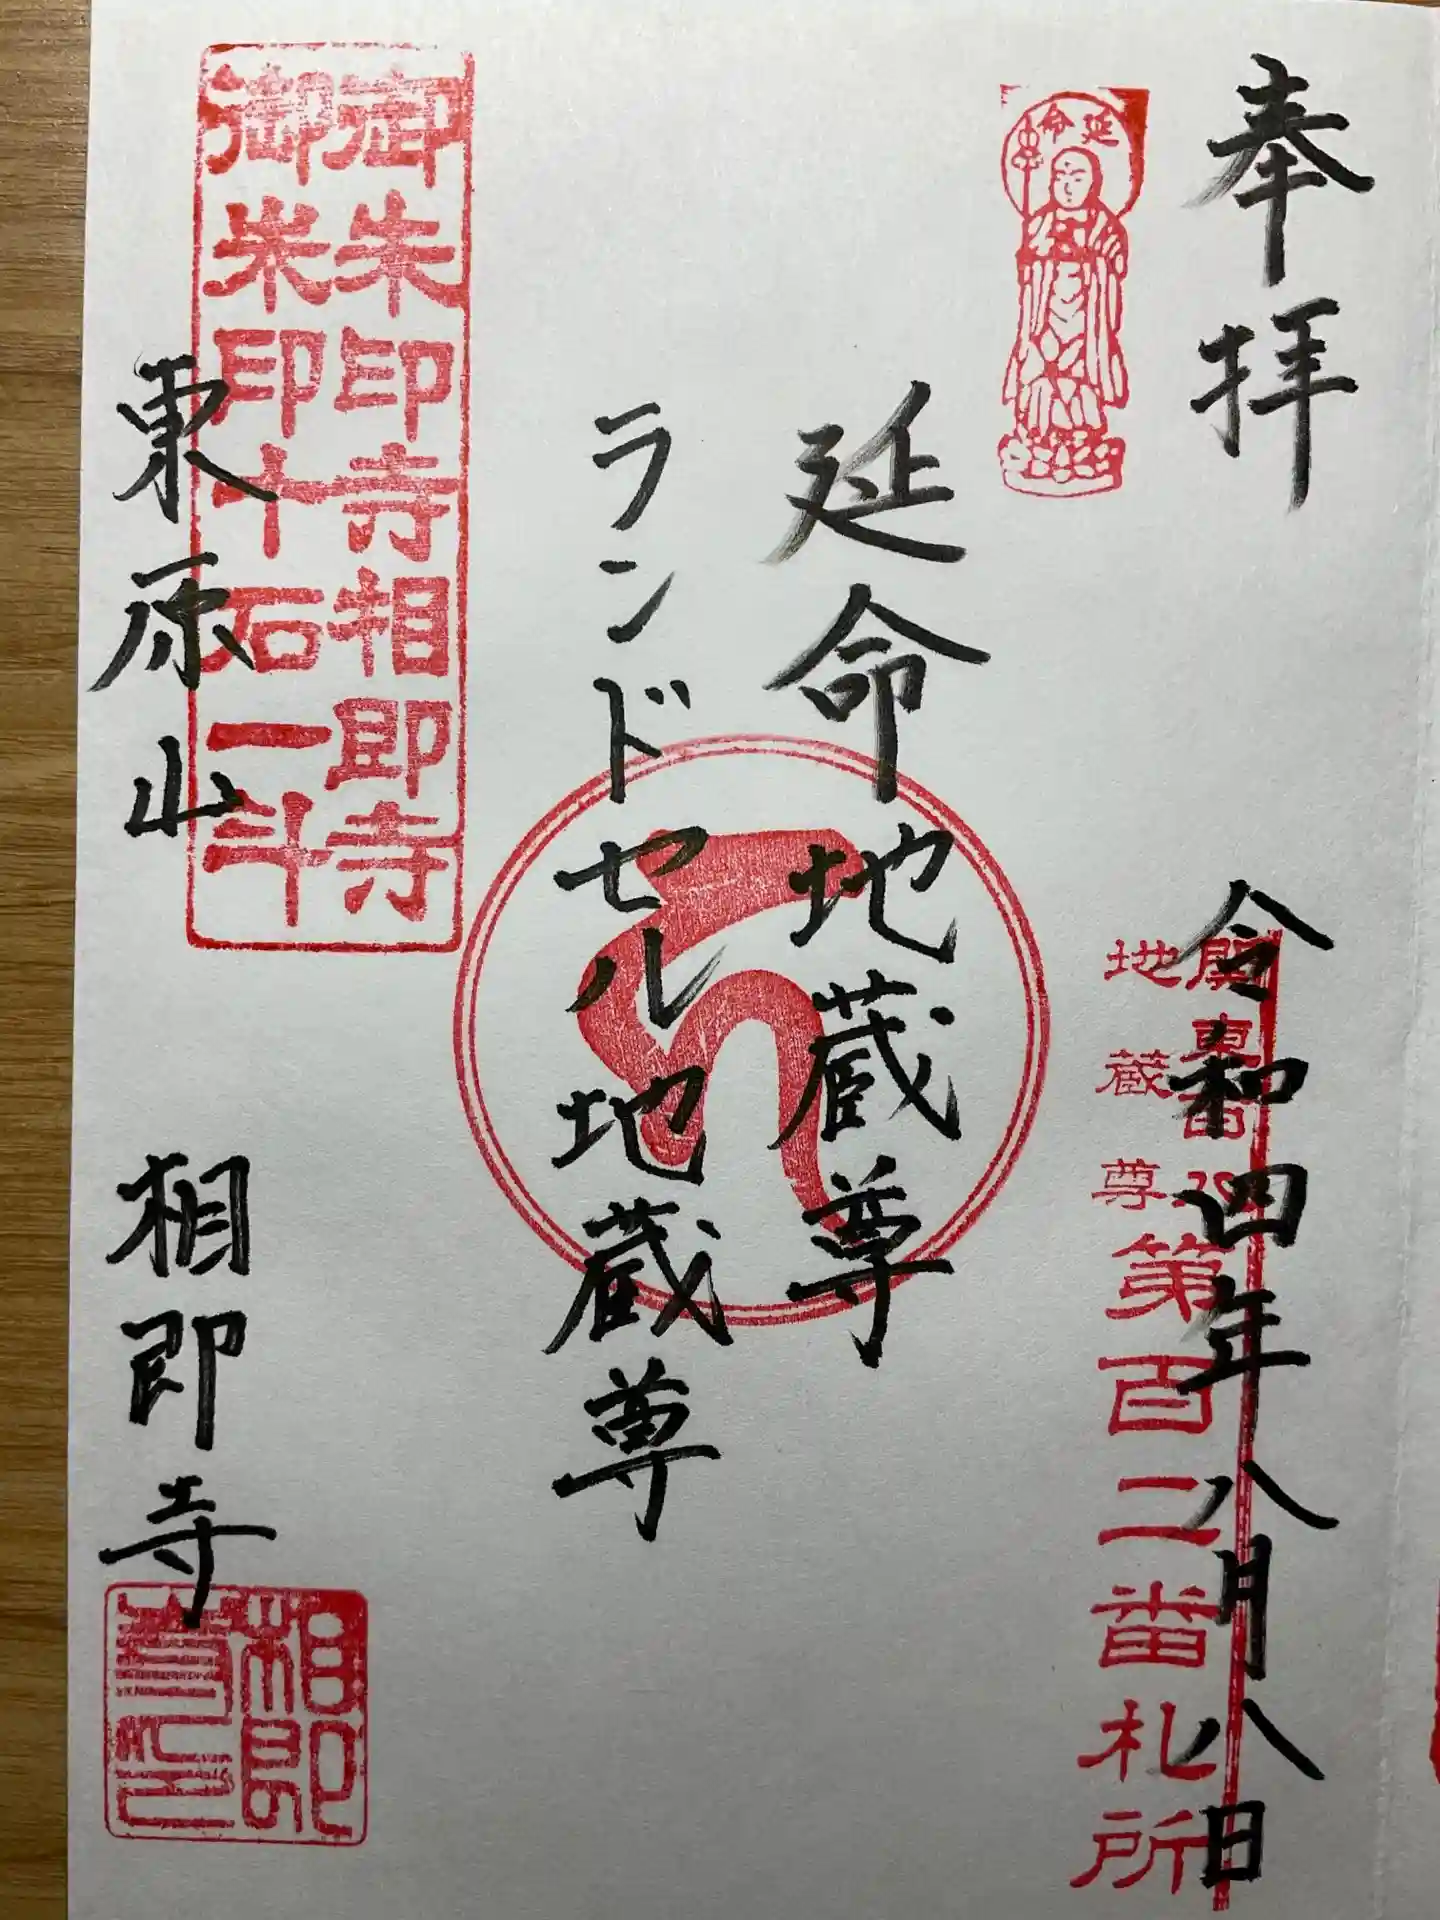 奉拝
令和四年八月八日
延命
関東百八
地蔵尊
第百二番札所
延命地蔵尊
ランドセル地蔵尊
御朱印寺相即寺
御米印十石一斗
東原山
相即寺
相即
寺印